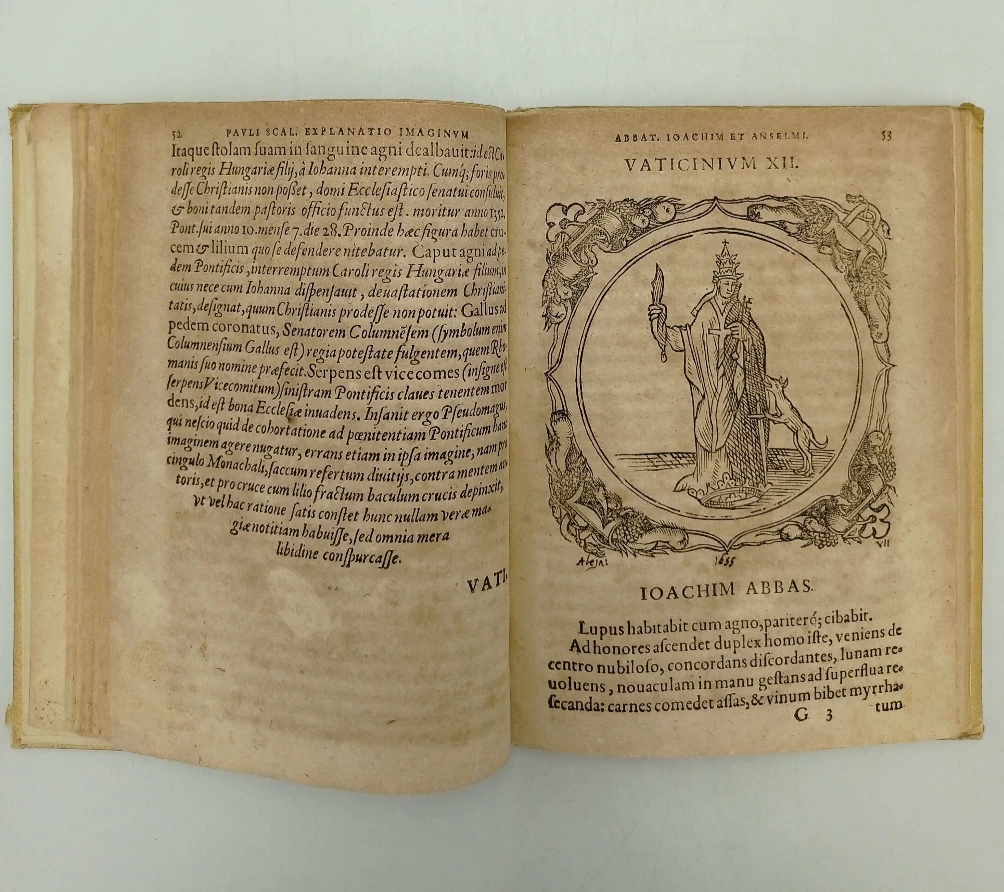 52 PAVLI SCAL. EXPLANATIO IMAGINVM
Itaque stolam suam in sanguine agni dealbauit: id est Ca-
roli regis Hungariæ filij, à Iohanna interempti. Cumq́; foris
desse Christianis non posset, domi Ecclesiastico senatui consuluit,
& boni tandem pastoris officio functus est. moritur anno 1352.
Pont. sui anno 10. mense 7. die 28. Proinde hæc figura habet cru-
cem & lilium quo se defendere nitebatur. Caput agni ad pe-
dem Pontificis, interremptum Caroli regis Hungariæ filium,
cuius nece cum Iohanna dispensauit, deuastationem Christiani-
tatis, designat, quum Christianis prodesse non potuit: Gallus ad
pedem coronatus, Senatorem Columnēsem (symbolum enim
Columnensium Gallus est) regia potestate fulgentem, quem
manis suo nomine præfecit. Serpens est vicecomes (insigne est
serpens Vicecomitum) sinistram Pontificis claues tenentem mor
dens, id est bona Ecclesiæ inuadens. Insanit ergo Pseudomagus,
qui nescio quid de cohortatione ad pœnitentiam Pontificum hanc
imaginem agere nugatur, errans etiam in ipsa imagine, nam pro
cingulo Monachali, saccum refertum diuitijs, contra mentem au-
toris, et pro cruce cum lilio fractum baculum crucis depinxit,
vt vel hac ratione satis constet hunc nullam veræ ma-
giæ notitiam habuisse, sed omnia mera
libidine conspurcasse.
VATI-
ABBAT. IOACHIM ET ANSELMI. 53
VATICINIVM XII.
1655
VII
IOACHIM ABBAS.
Lupus habitabit cum agno, pariterq́; cibabit.
Ad honores ascendet duplex homo iste, veniens de
centro nubiloso, concordans discordantes, lunam re-
uoluens, nouaculam in manu gestans ad superflua re-
secanda: carnes comedet assas, & vinum bibet myrrha-
G 3 tum